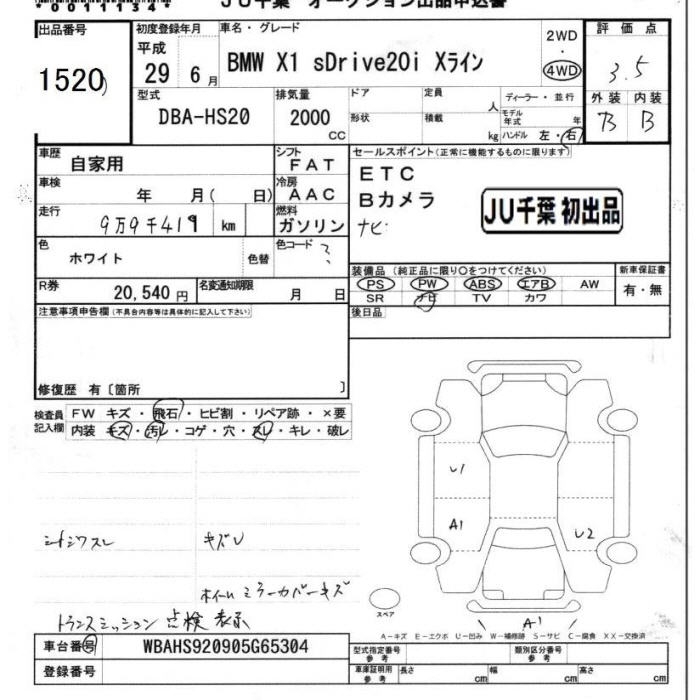 *00111134*
JU千葉 オークション出品申込書
出品番号
1520
初度登録年月
平成
29 6月
車名・グレード
BMW X1 sDrive20i Xライン
2WD
・
4WD
評価点
3.5
外装 内装
B B
型式
DBA-HS20
排気量
2000
CC
ドア
形状
定員
人
積載
kg
ディーラー・並行
モデル年式 年
ハンドル 左・右
車歴
自家用
シフト
FAT
車検
年 月( 日)
冷房
AAC
走行
9万9千419 km
燃料
ガソリン
色
ホワイト
色替
色コード
?
R券
20,540円
名変通知期限
月 日
セールスポイント(正常に機能するものに限ります)
ETC
Bカメラ
ナビ
JU千葉 初出品
装備品(純正品に限り〇をつけてください)
PS PW ABS エアB AW
SR ナビ TV カワ
新車保証書
有・無
後日品
注意事項申告欄(不具合内容等は具体的に記入して下さい)
修復歴 有〔箇所 〕
検査員記入欄
FW キズ・飛石・ヒビ割・リペア跡・×要
内装 キズ・汚レ・コゲ・穴・スレ・キレ・破レ
シートシワスレ キズU
ホイール ミラーカバーキズ
トランスミッション 点検 表示
U1
A1
U2
A1
スペア
A−キズ E−エクボ U−凹み W−補修跡 S−サビ C−腐食 XX−交換済
車台番号
WBAHS920905G65304
登録番号
型式指定番号
参考
類別区分番号
参考
車庫証明用
参考
長さ cm
幅 cm
高さ cm